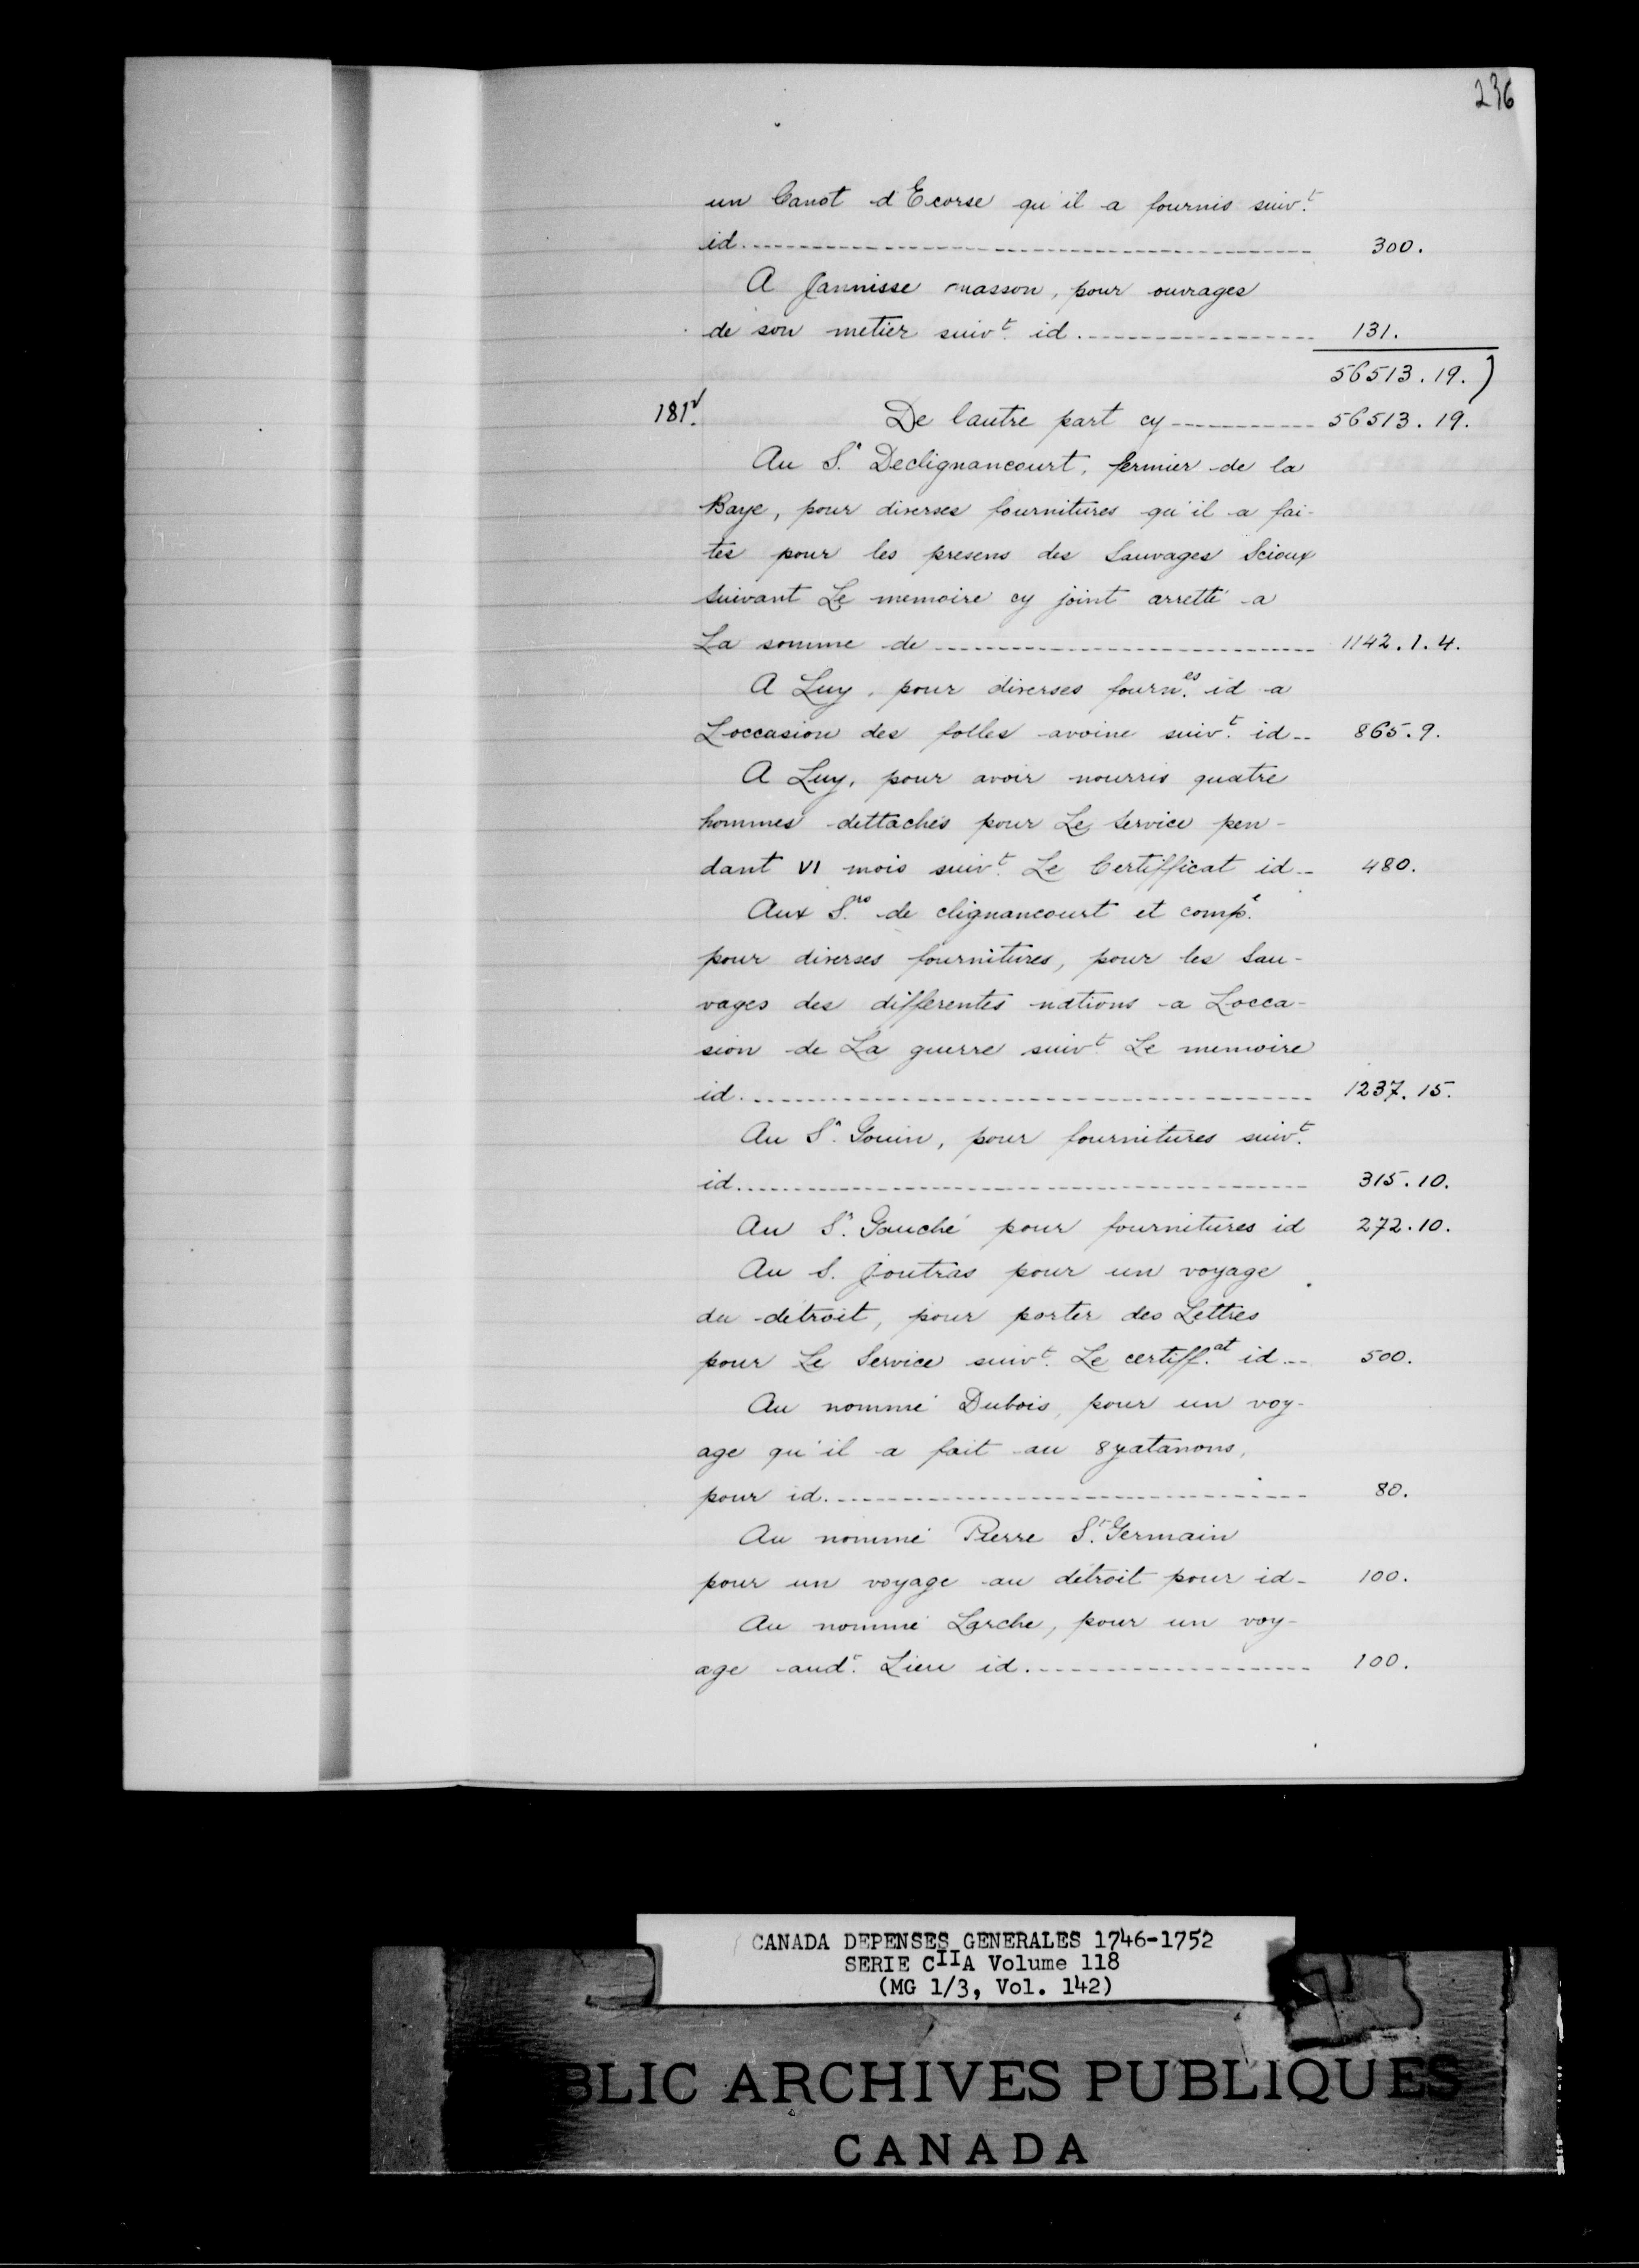 236
un Canot d'Ecorse qu'il a fournis suiv.t
id. 300.
A Jannisse masson, pour ouvrages
de son metier suiv.t id. 131.
56513.19.)
181v. De lautre part cy 56513.19.
Au S.r Declignancourt, fermier de la
Baye, pour diverses fournitures qu'il a fai-
tes pour les presens des Sauvages Scioux
suivant Le memoire cy joint arretté a
La somme de 1142.1.4.
A Luy, pour diverses fourn.es id a
L'occasion des folles avoine suiv.t id 865.9.
A Luy, pour avoir nourris quatre
hommes dettachés pour Le Service pen-
dant VI mois suiv.t Le Certifficat id 480.
Aux S.rs de clignancourt et comp.e
pour diverses fournitures, pour les Sau-
vages des differentes nations a Locca-
sion de La guerre suiv.t Le memoire
id. 1237.15.
Au S.r Gouin, pour fournitures suiv.t
id. 315.10.
Au S.r Gauché pour fournitures id 272.10.
Au S. Joutras pour un voyage
du détroit, pour porter des Lettres
pour Le Service suiv.t Le certiff.at id 500.
Au nommé Dubois, pour un voy-
age qu'il a fait au 8yatanons,
pour id. 80.
Au nommé Pierre S.t Germain
pour un voyage au détroit pour id 100.
Au nommé Larche, pour un voy-
age aud.t Lieu id. 100.
CANADA DEPENSES GENERALES 1746-1752
SERIE CIIA Volume 118
(MG 1/3, Vol. 142)
BLIC ARCHIVES PUBLIQUES
CANADA